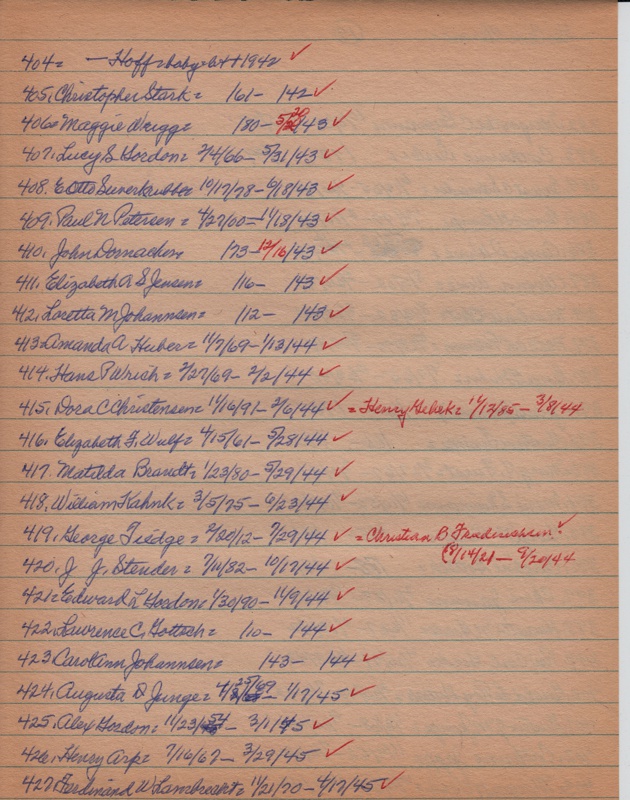 404= — Hoff=baby= 1942 ✓
405, Christopher Stark= /61- /42 ✓
406= Maggie Wrigg= /80- 5/20/43 ✓
407, Lucy S Gordon= 2/4/66- 5/31/43 ✓
408. E Otto 10/17/78- 6/18/43 ✓
409, Paul N Petersen= 4/27/00- 11/18/43 ✓
410, John Dornacher /73-12/16/43 ✓
411, Elizabeth A S Jensen= /16- /43 ✓
412, Loretta M Johannsen= /12- /43 ✓
413= Amanda A. Huber= 11/7/69- 1/13/44 ✓
414, Hans P Wrich= 2/27/69- 2/2/44 ✓
415, Dora C Christensen= 11/16/91- 2/6/44 ✓ = Henry 11/12/85- 3/8/44
416, Elizabeth F, Wulf= 4/15/61- 5/28/44 ✓
417. Matilda Brandt= 1/23/80- 5/29/44 ✓
418, William Kahnk= 3/5/75- 6/23/44 ✓
419, George Tiedge= 2/20/12- 7/29/44 ✓ = Christian B ✓
8/14/21- 9/20/44
420, J J, Stender= 7/11/82- 10/17/44 ✓
421= Edward L Gordon= 1/30/90- 11/9/44 ✓
422, Lawrence C, Gottsch= /10- /44 ✓
423 Carol Ann Johannsen= /43- /44 ✓
424, Augusta D Junge= 4/25/69- 1/17/45 ✓
425, Alex Gordon= 11/23/54- 3/1/45 ✓
426, Henry Arp= 7/16/67- 3/29/45 ✓
427, Ferdinand W Lambrecht= 11/21/70- 4/17/45 ✓